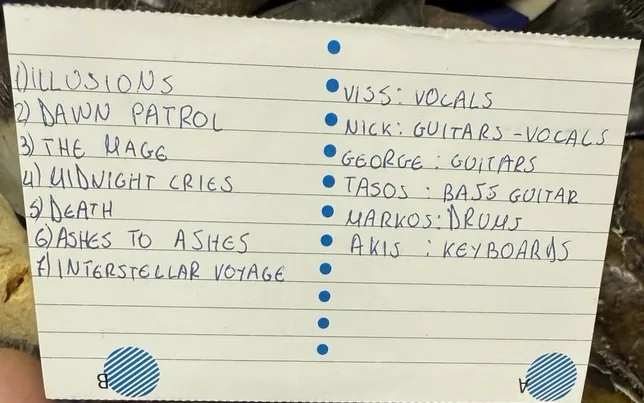 1) ILLUSIONS
2) DAWN PATROL
3) THE MAGE
4) MIDNIGHT CRIES
5) DEATH
6) ASHES TO ASHES
7) INTERSTELLAR VOYAGE
VISS: VOCALS
NICK: GUITARS - VOCALS
GEORGE: GUITARS
TASOS: BASS GUITAR
MARKOS: DRUMS
AKIS: KEYBOARDS
B
A